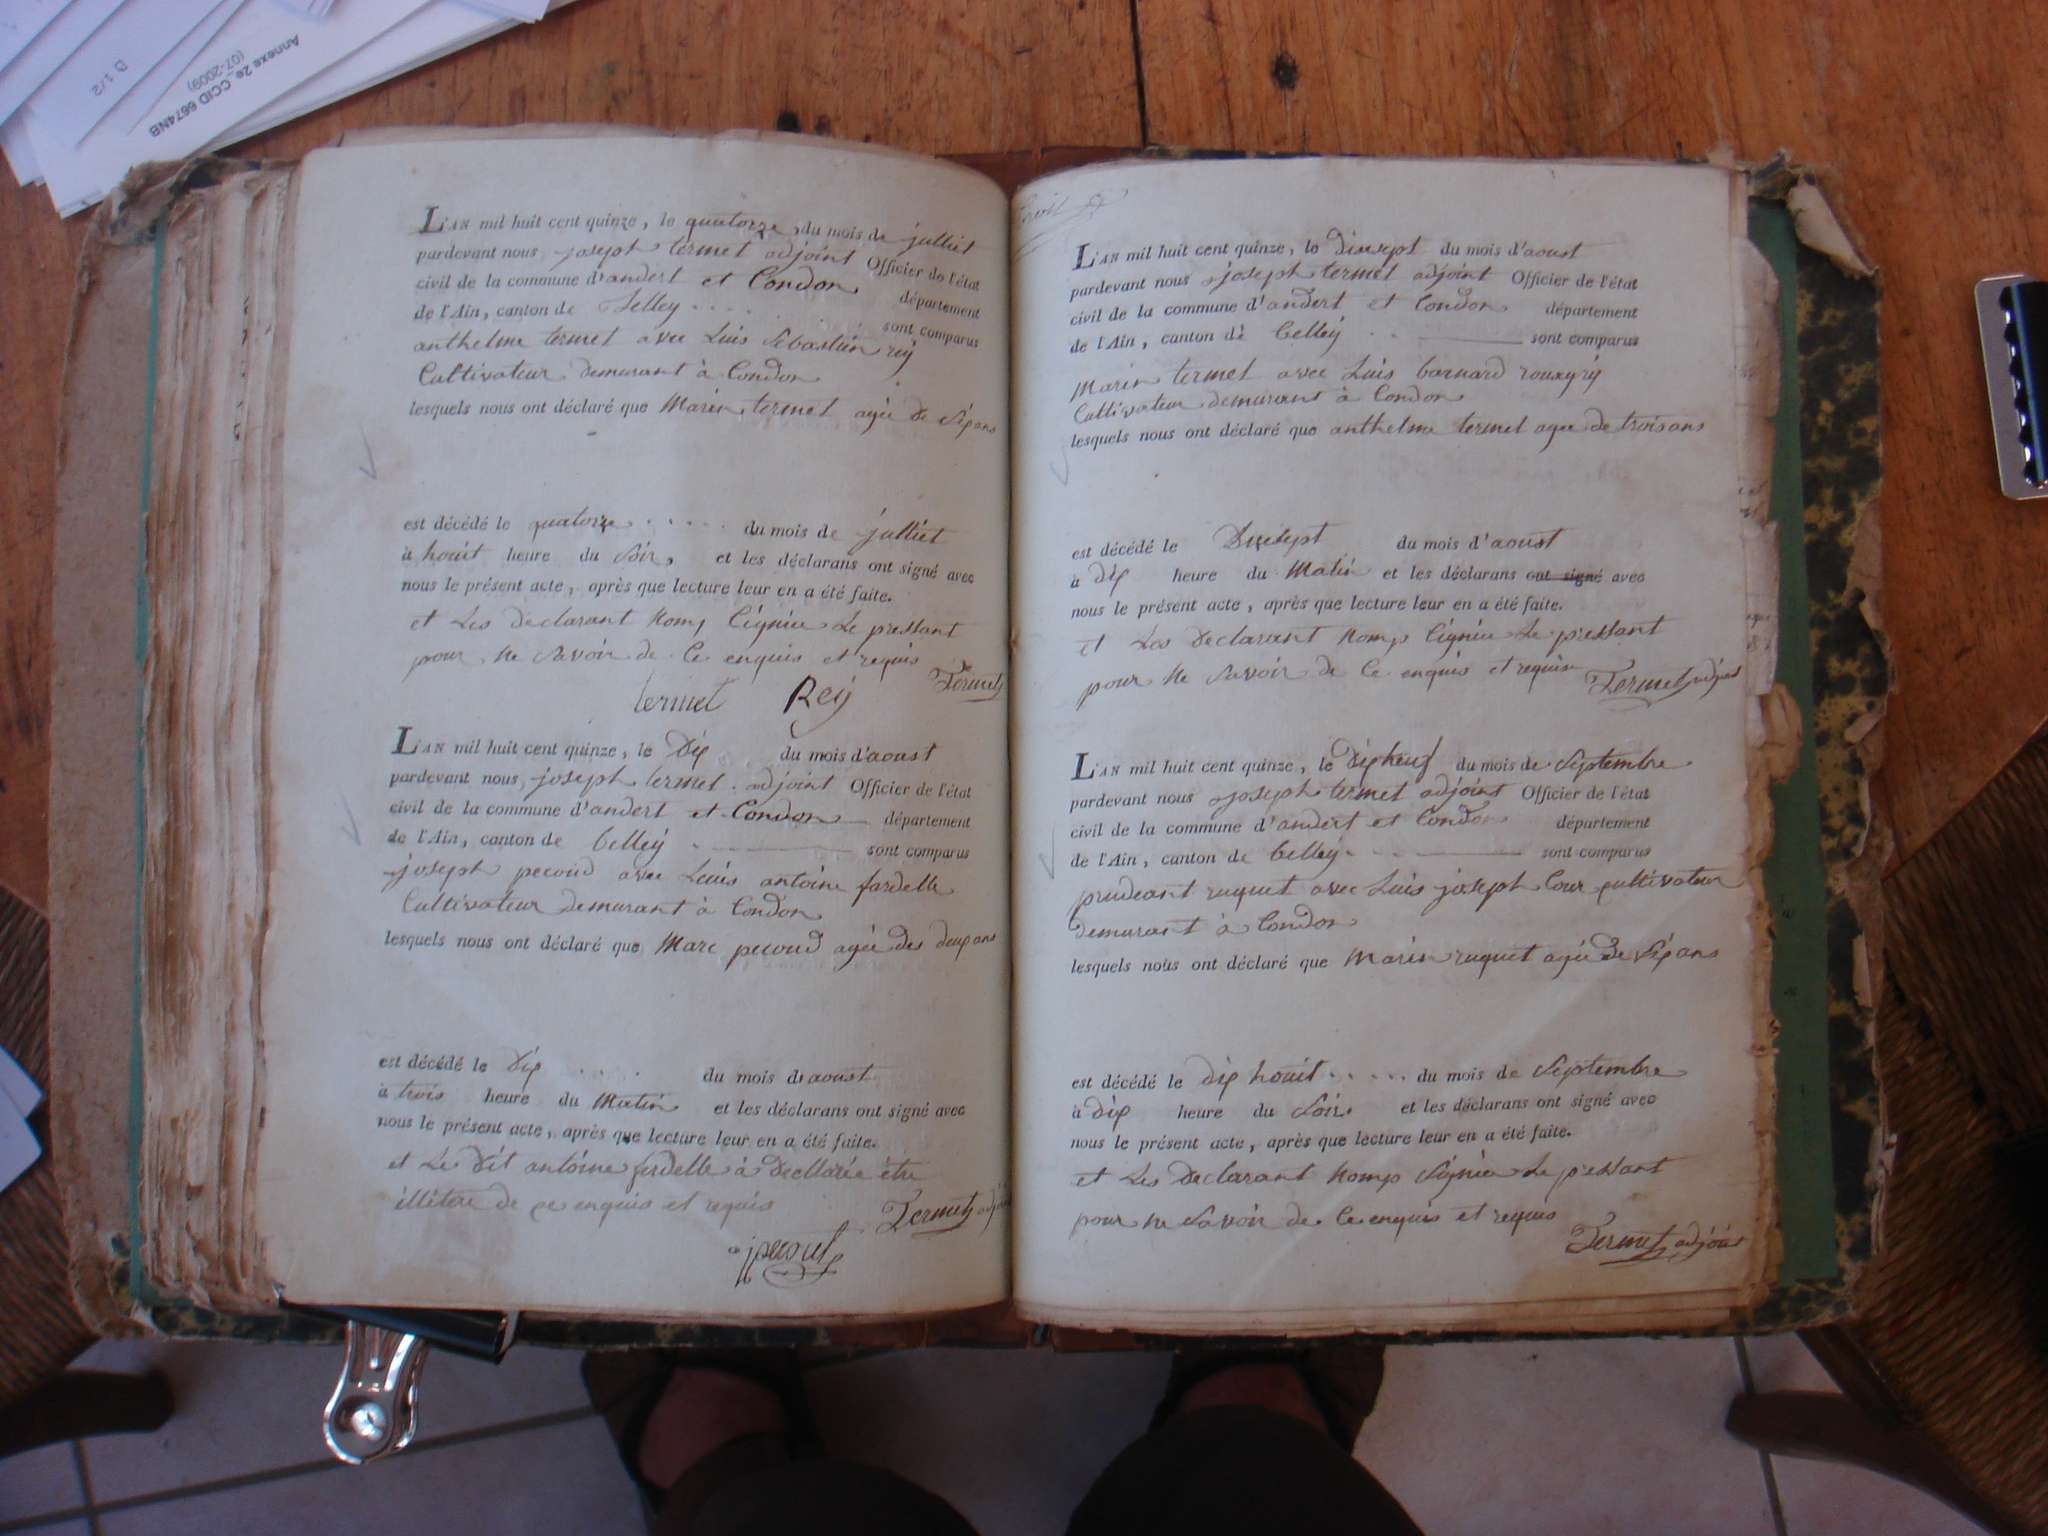 Annexe 2e_CCID 6674NB
(07-2009)
D 1/2
L'AN mil huit cent quinze, le quatorze du mois de julliet
pardevant nous joseph termet adjoint Officier de l'état
civil de la commune d'andert et Condon département
de l'Ain, canton de Belley sont comparus
anthelme termet avec Luis Sebastien rey
Cultivateur demurant à Condon
lesquels nous ont déclaré que Marin termet agée de Sip ans
est décédé le quatorze du mois de julliet
à houit heure du Soir, et les déclarans ont signé avec
nous le présent acte, après que lecture leur en a été faite.
et Les declarant nomp Cignie Le pressant
pour ne Savoir de Ce enquis et requis
termet Rey Termet
L'AN mil huit cent quinze, le Dip du mois d'aoust
pardevant nous joseph termet adjoint Officier de l'état
civil de la commune d'andert et Condon département
de l'Ain, canton de Belley sont comparus
joseph pecoud avec Luis antoine fardelle
Cultivateur demurant à Condon
lesquels nous ont déclaré que Marc pecoud agée des deup ans
est décédé le Dip du mois d'aoust
à trois heure du Matin et les déclarans ont signé avec
nous le présent acte, après que lecture leur en a été faite.
et Le Dit antoine fardelle à Decllarée être
illitere de ce enquis et requis
Termet adjoint
jpecoud
L'AN mil huit cent quinze, le Dixsept du mois d'aoust
pardevant nous joseph termet adjoint Officier de l'état
civil de la commune d'andert et Condon département
de l'Ain, canton de Belley sont comparus
Marin termet avec Luis barnard rouxyrÿ
Cultivateur demurant à Condon
lesquels nous ont déclaré que anthelme termet agée de trois ans
est décédé le Dixsept du mois d'aoust
à Dip heure du Matin et les déclarans ont signé avec
nous le présent acte, après que lecture leur en a été faite.
et Les Declarant nomp Cignie Le pressant
pour ne Savoir de Ce enquis et requis Termet adjoint
L'AN mil huit cent quinze, le Dipneuf du mois de Septembre
pardevant nous joseph termet adjoint Officier de l'état
civil de la commune d'andert et Condon département
de l'Ain, canton de Belley sont comparus
prudeant ruquet avec Luis joseph Cour cultivateur
demurant à Condon
lesquels nous ont déclaré que Marin ruquet agée de Sip ans
est décédé le dip houit du mois de Septembre
à Dip heure du Soir et les déclarans ont signé avec
nous le présent acte, après que lecture leur en a été faite.
et Les Declarant nomp Signie Le pressant
pour ne Savoir de Ce enquis et requis
Termet adjoint